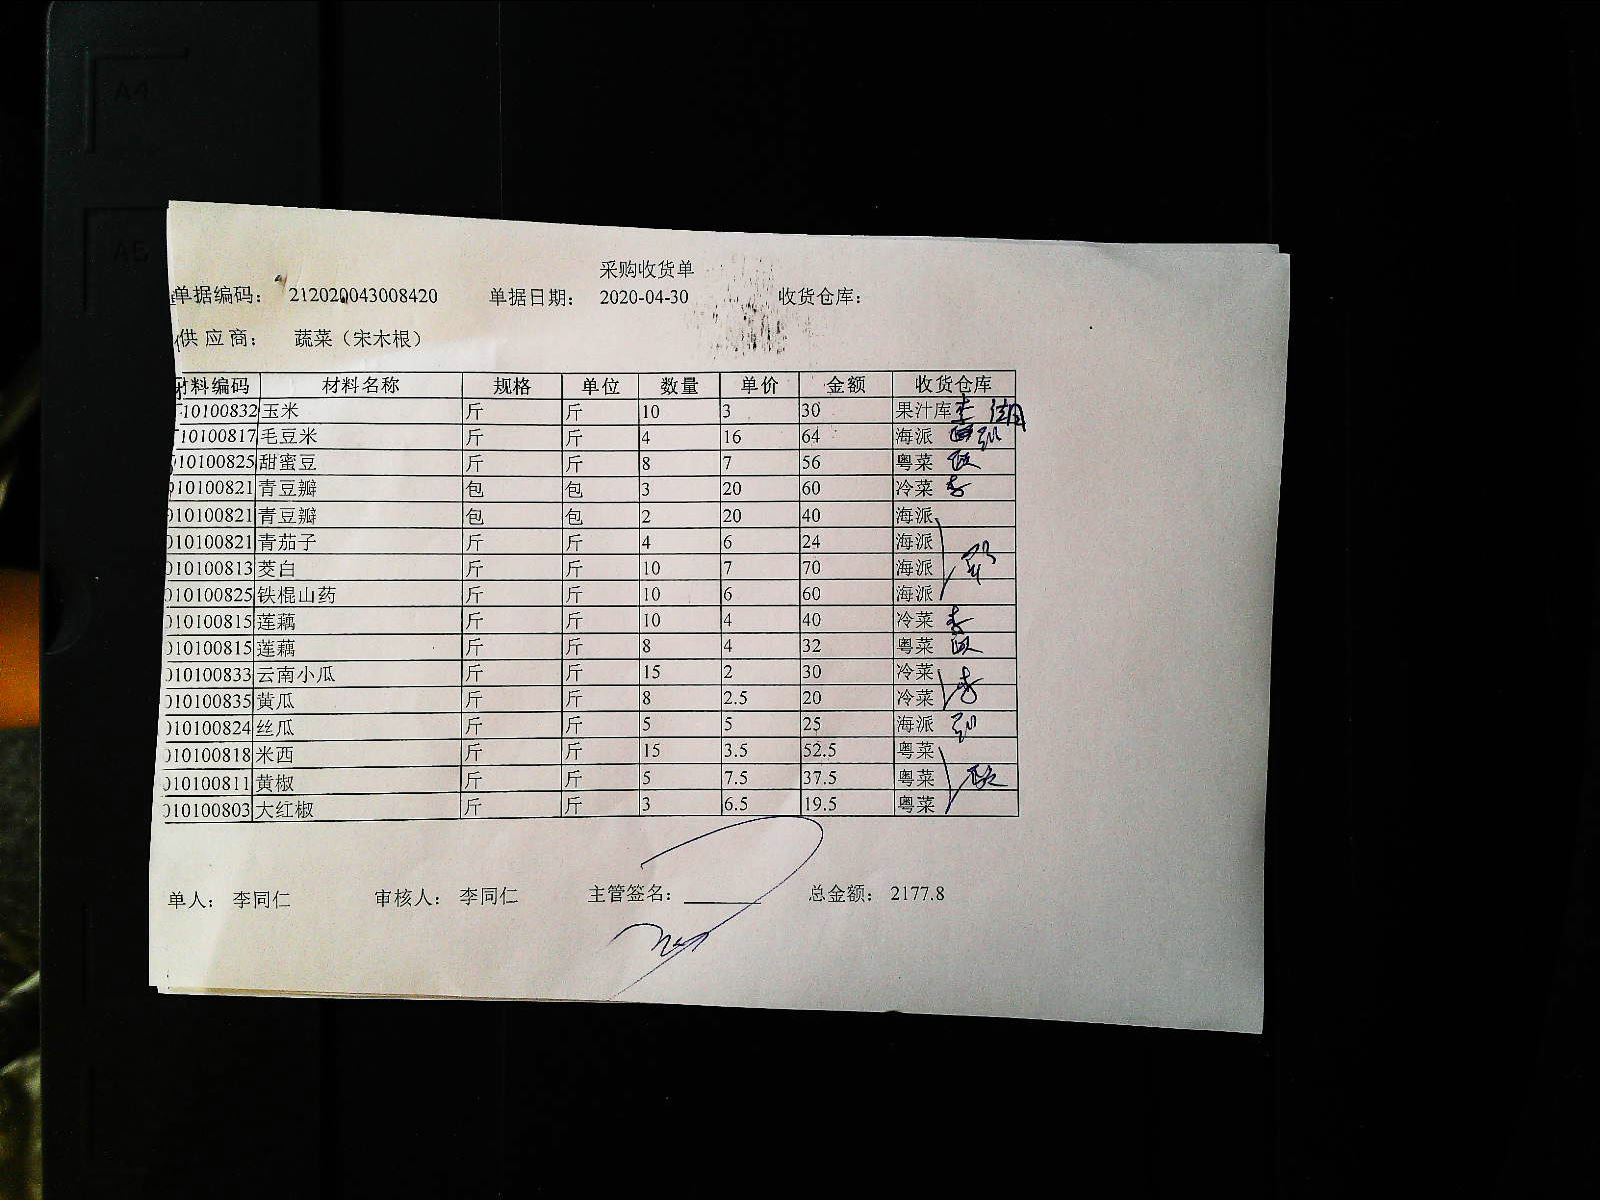 A4
A5
采购收货单
单据编码： 212020043008420 单据日期： 2020-04-30 收货仓库：
供应商： 蔬菜（宋木根）
材料编码 材料名称 规格 单位 数量 单价 金额 收货仓库
10100832 玉米 斤 斤 10 3 30 果汁库 李
10100817 毛豆米 斤 斤 4 16 64 海派
10100825 甜蜜豆 斤 斤 8 7 56 粤菜
010100821 青豆瓣 包 包 3 20 60 冷菜 李
010100821 青豆瓣 包 包 2 20 40 海派
010100821 青茄子 斤 斤 4 6 24 海派
010100813 茭白 斤 斤 10 7 70 海派
010100825 铁棍山药 斤 斤 10 6 60 海派
010100815 莲藕 斤 斤 10 4 40 冷菜 李
010100815 莲藕 斤 斤 8 4 32 粤菜
010100833 云南小瓜 斤 斤 15 2 30 冷菜
010100835 黄瓜 斤 斤 8 2.5 20 冷菜 李
010100824 丝瓜 斤 斤 5 5 25 海派
010100818 米西 斤 斤 15 3.5 52.5 粤菜
010100811 黄椒 斤 斤 5 7.5 37.5 粤菜
010100803 大红椒 斤 斤 3 6.5 19.5 粤菜
单人： 李同仁 审核人： 李同仁 主管签名： 总金额： 2177.8